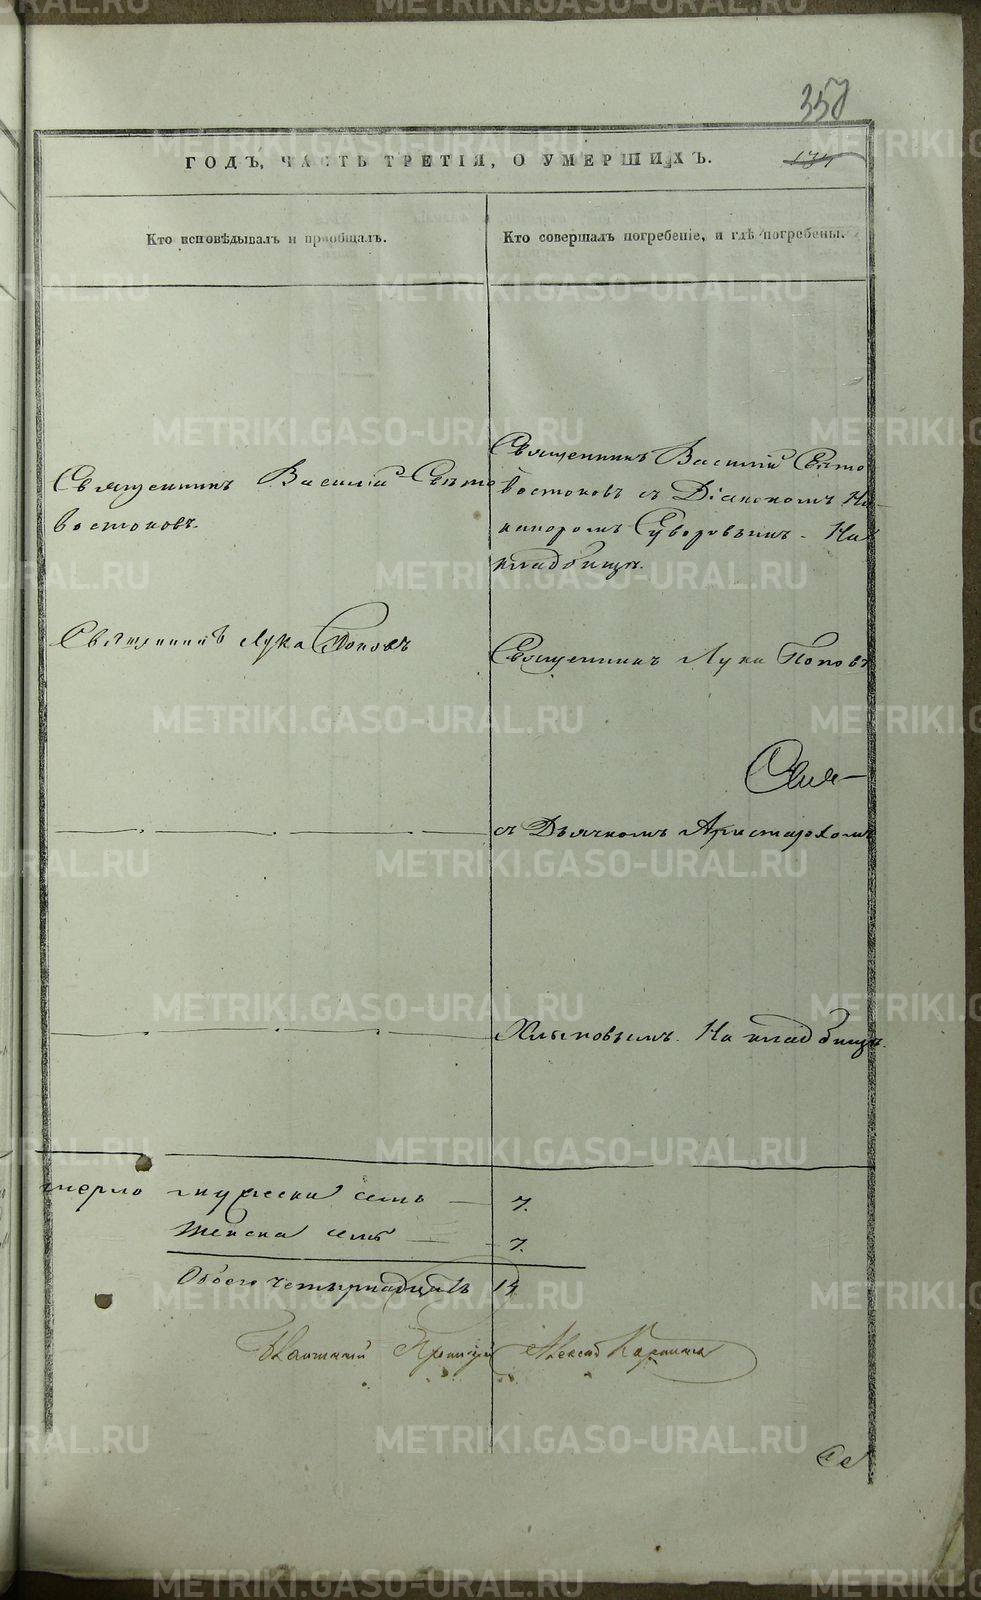 358
134
ГОДЪ, ЧАСТЬ ТРЕТІЯ, О УМЕРШИХЪ.
Кто исповѣдывалъ и пріобщалъ.
Кто совершалъ погребеніе, и гдѣ погребены.
Священникъ Василій Свѣто
востоковъ.
Священникъ Василій Свѣто
востоковъ съ Діакономъ Ни
каноромъ Суворовымъ. На
кладбищѣ.
Священникъ Лука Поповъ
Священникъ Лука Поповъ
съ Дьячкомъ Аристархомъ
Хлыновымъ. На кладбищѣ.
умерло мужеска семь — 7.
Женска семь — 7.
Обоего четырнадцать 14
METRIKI.GASO-URAL.RU